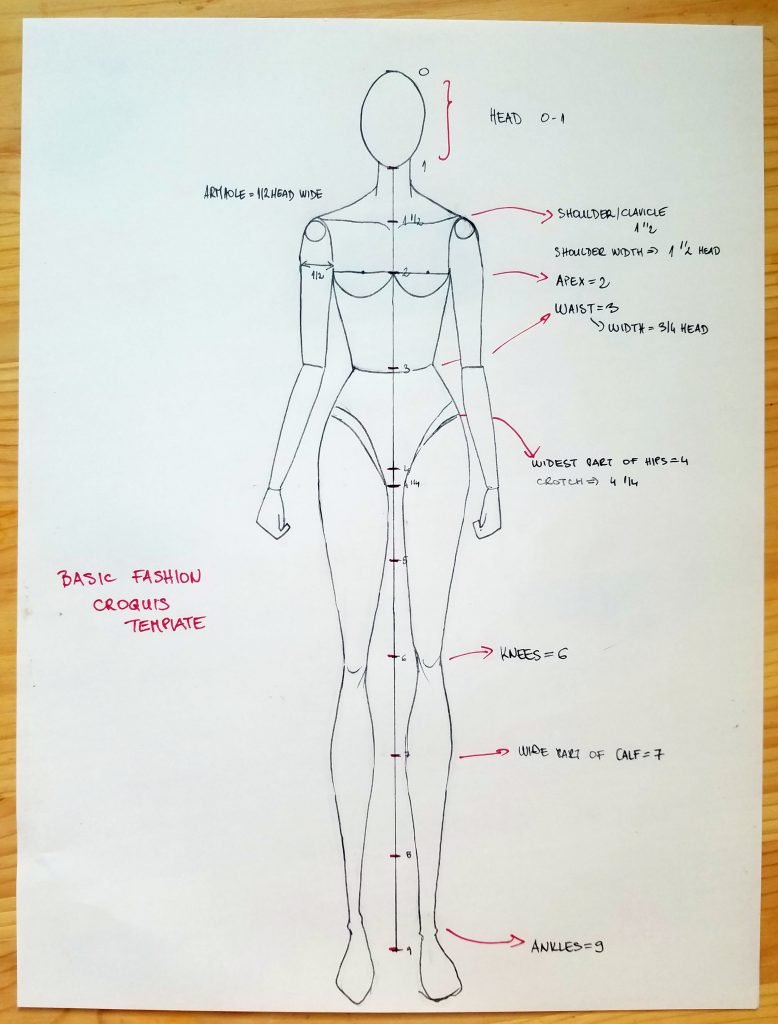 0
HEAD 0-1
1
ARMHOLE = 1/2 HEAD WIDE
SHOULDER/CLAVICLE
1 1/2
1 1/2
SHOULDER WIDTH => 1 1/2 HEAD
1/2
2
APEX = 2
WAIST = 3
WIDTH = 3/4 HEAD
3
WIDEST PART OF HIPS = 4
4
CROTCH => 4 1/4
4 1/4
5
BASIC FASHION
CROQUIS
TEMPLATE
6
KNEES = 6
7
WIDE PART OF CALF = 7
8
ANKLES = 9
9